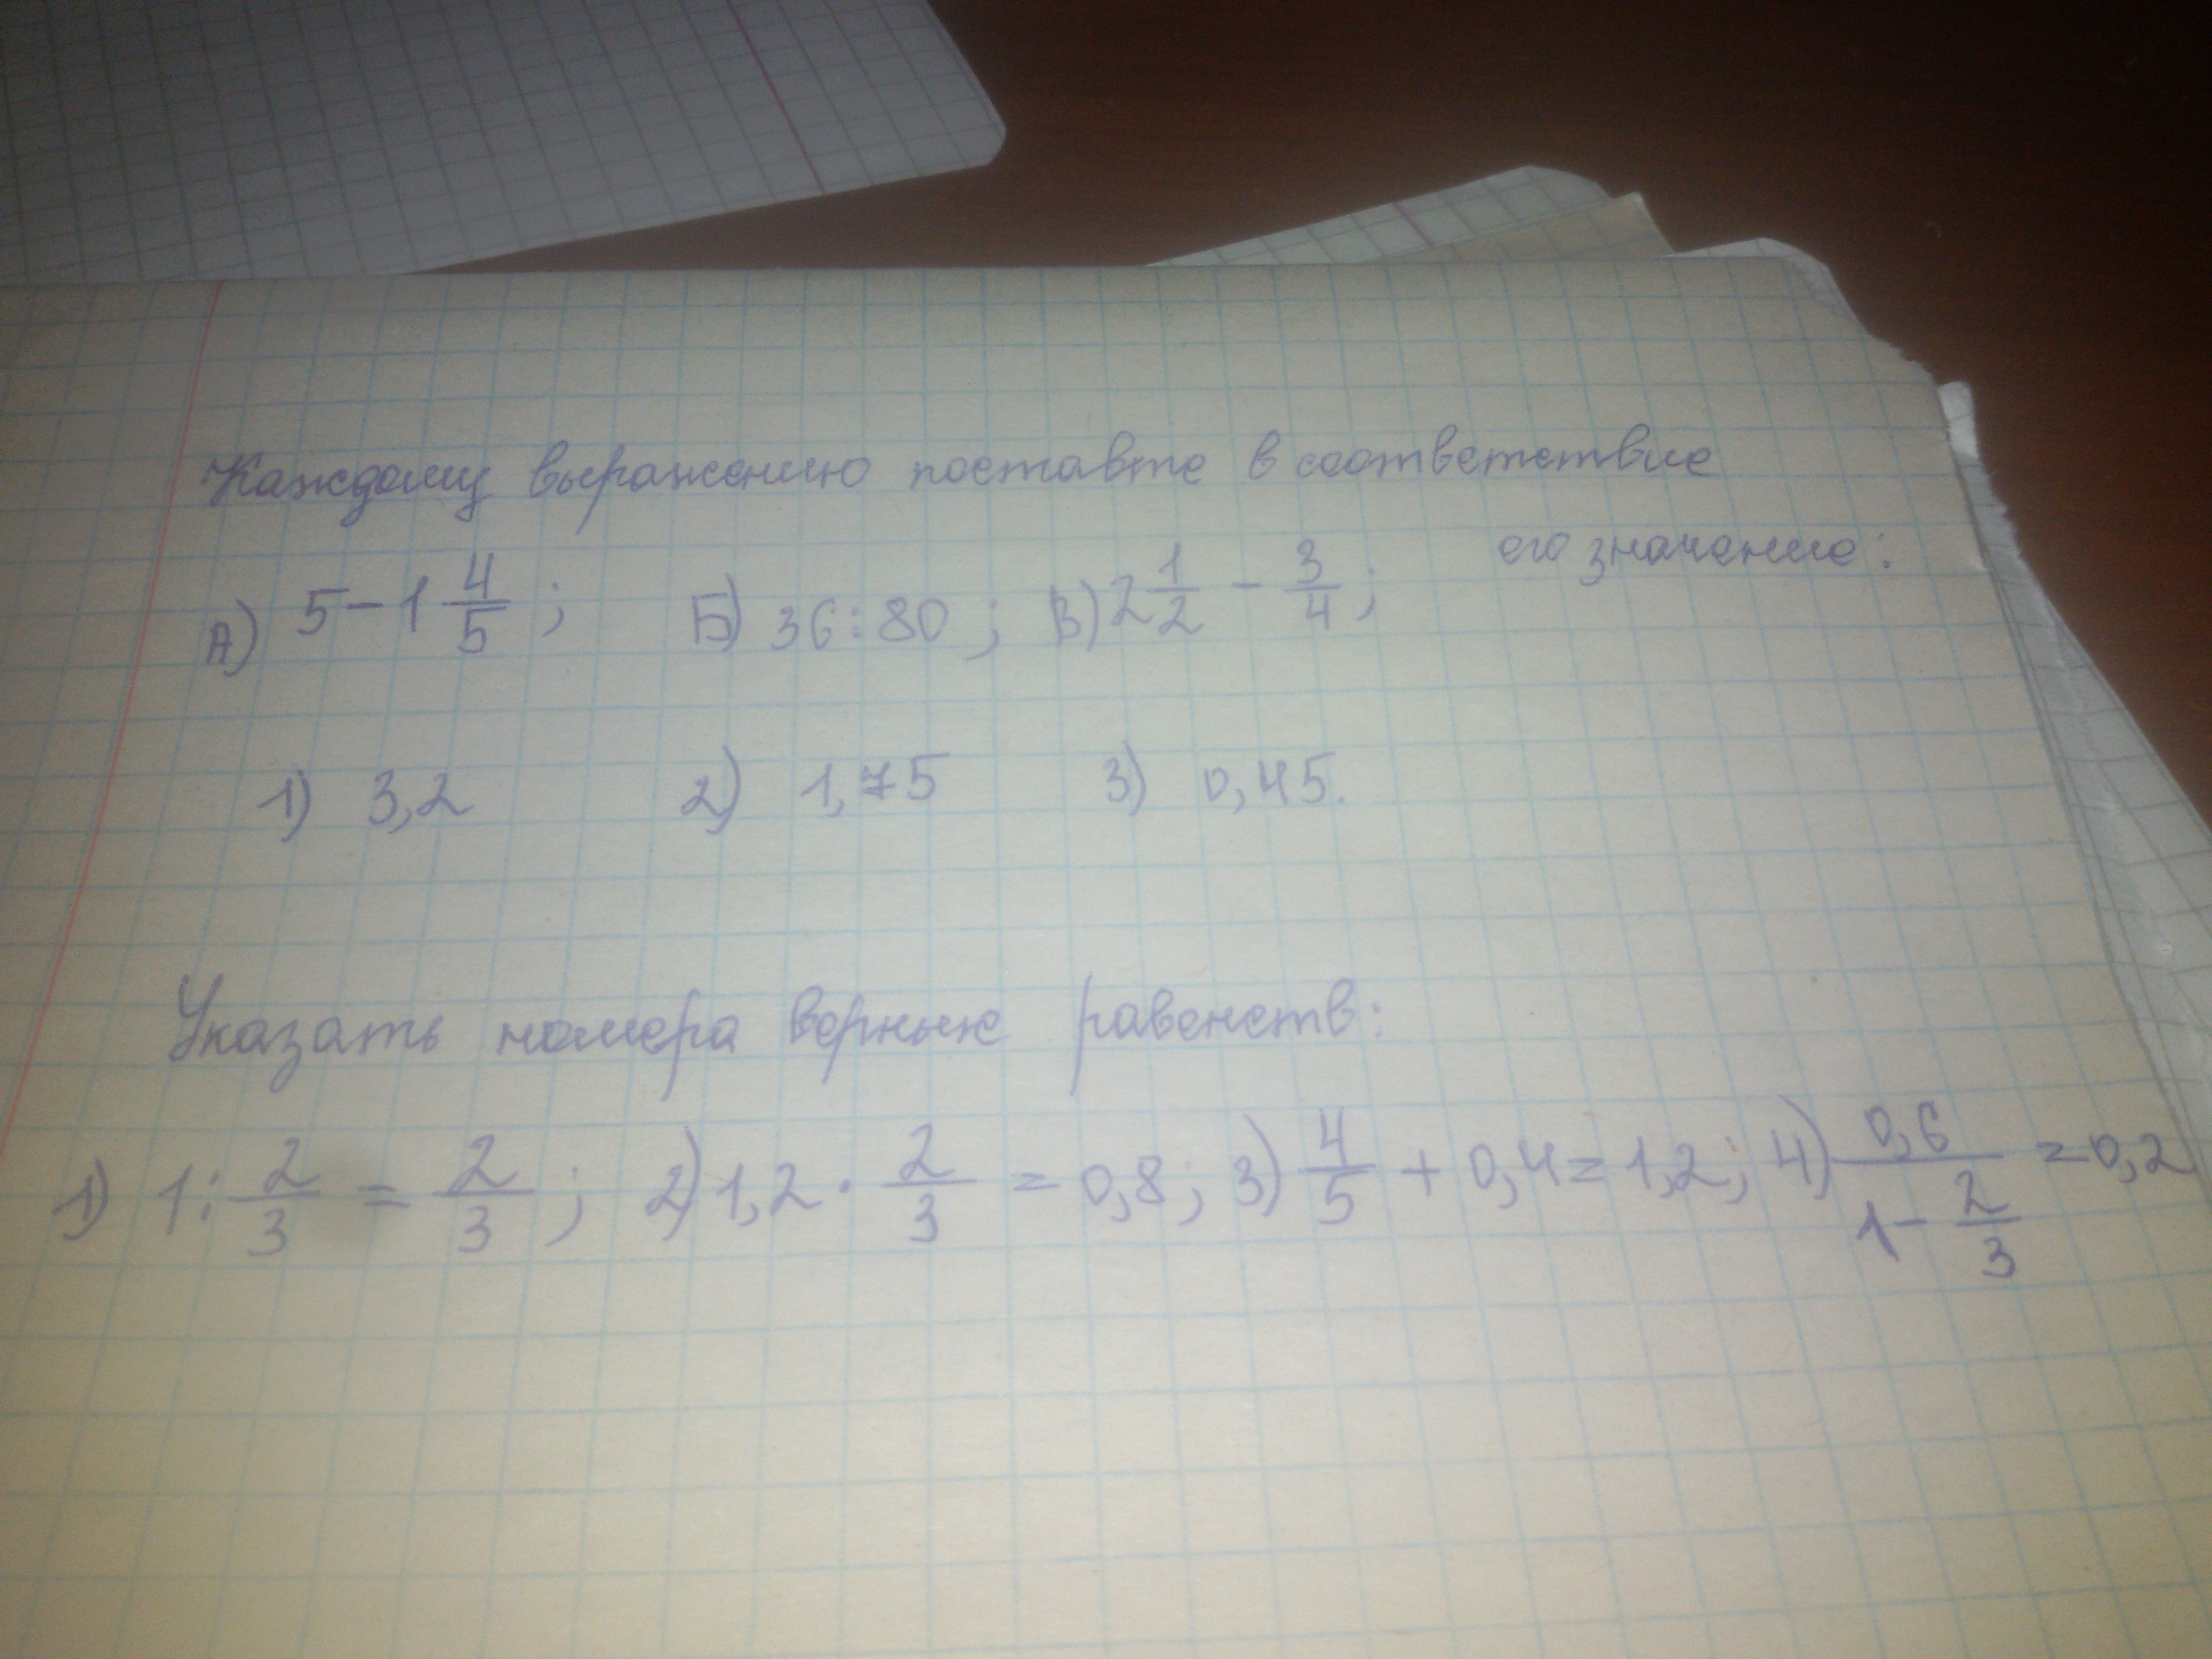 Каждому выражению поставте в соответствие
его значение:
А) 5-1 4/5 ; Б) 36:80 ; В) 2 1/2 - 3/4 ;
1) 3,2 2) 1,75 3) 0,45.
Указать номера верных равенств:
1) 1: 2/3 = 2/3 ; 2) 1,2 · 2/3 = 0,8 ; 3) 4/5 + 0,4 = 1,2 ; 4) 0,6/(1 - 2/3) = 0,2